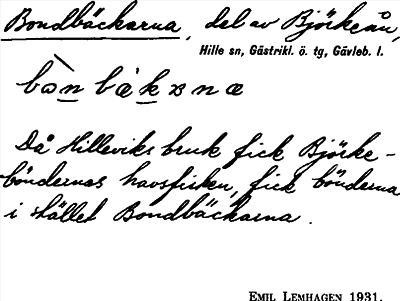 Bondbäckarna, del av Björkeån,
Hille sn, Gästrikl. ö. tg, Gävleb. l.
bòn bákənæ
Då Hilleviks bruk fick Björke-
böndernas havsfisken, fick bönderna
i stället Bondbäckarna.
EMIL LEMHAGEN 1931.